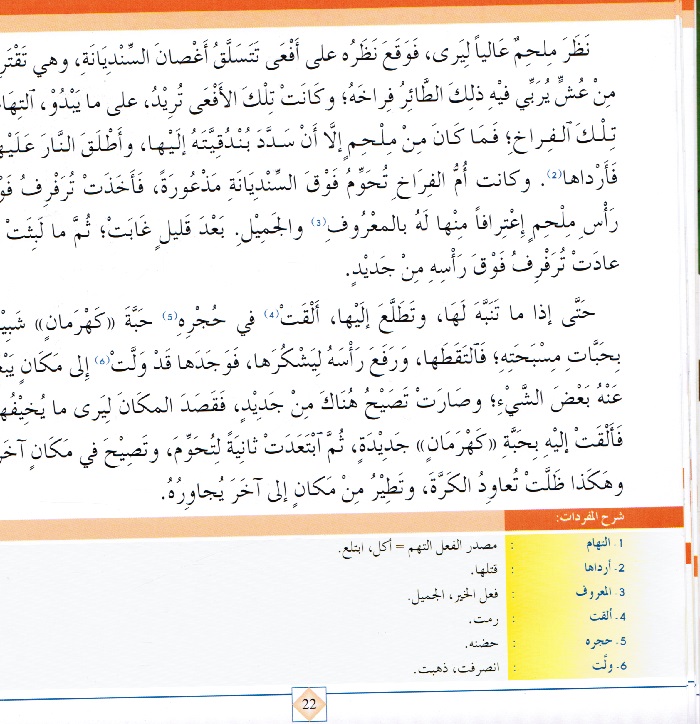 نَظَرَ مِلحِمٌ عَالياً لِيَرى، فَوَقَعَ نَظَرُه على أَفْعَى تَتَسَلَّقُ أَغْصانَ السِّنْدِيَانَةِ، وهي
مِنْ عُشٍّ يُرَبِّي فيْهِ ذلِكَ الطَّائِرُ فِراخَهُ؛ وكَانَتْ تِلْكَ الأَفْعَى تُرِيْدُ، على ما يَبْدُوْ،
تِلْكَ الفِراخِ؛ فَمَا كَانَ مِنْ مِلْحِمٍ إلَّا أَنْ سَدَّدَ بُنْدُقِيَّتَهُ إلَيْها، وأَطْلَقَ النَّارَ
فَأَرْداها(2). وكانت أُمُّ الفِرَاخِ تُحَوِّمُ فَوْقَ السِّنْديَانَةِ مَذْعُورَةً، فَأَخَذَتْ تُرَفْرِفُ
رَأْسِ مِلْحِمٍ إعْتِرافاً مِنْها لَهُ بالمعْرُوفِ(3) والجَمِيْلِ. بَعْدَ قَليلٍ غَابَتْ؛ ثُمَّ ما لَبِثَتْ
عادَتْ تُرَفْرِفُ فَوْقَ رَأْسِهِ مِنْ جَديْدٍ.
حَتَّى إذا ما تَنَبَّهَ لَهَا، وتَطَلَّعَ إلَيْها، أَلْقَتْ(4) في حُجْرِهِ(5) حَبَّةَ «كَهْرَمانٍ»
بِحَبَّاتِ مِسْبَحَتِهِ؛ فَالتَقَطَها، ورَفَعَ رَأْسَهُ لِيَشْكُرَها، فَوَجَدَها قَدْ وَلَّتْ(6) إلى مَكَانٍ
عَنْهُ بَعْضَ الشَّيْءِ؛ وصارَتْ تَصيْحُ هُنَاكَ مِنْ جَديْدٍ، فَقَصَدَ المكَانَ لِيَرى ما
فَأَلْقَتْ إليْهِ بِحَبَّةِ «كَهْرَمَانٍ» جَديْدَةٍ، ثُمَّ ٱبْتَعَدَتْ ثانِيَةً لِتُحَوِّمَ، وتَصِيْحَ في مَكَانٍ
وهَكَذا ظَلَّتْ تُعاوِدُ الكَرَّةَ، وتَطِيْرُ مِنْ مَكانٍ إلى آخَرَ يُجاوِرُهُ.
شرح المفردات:
1. التهام : مصدر الفعل التهم = أكل، ابتلع.
2. أرداها : قتلها.
3. المعروف : فعل الخير، الجميل.
4. ألقت : رمت.
5. حجره : حضنه.
6. ولَّت : انصرفت، ذهبت.
22